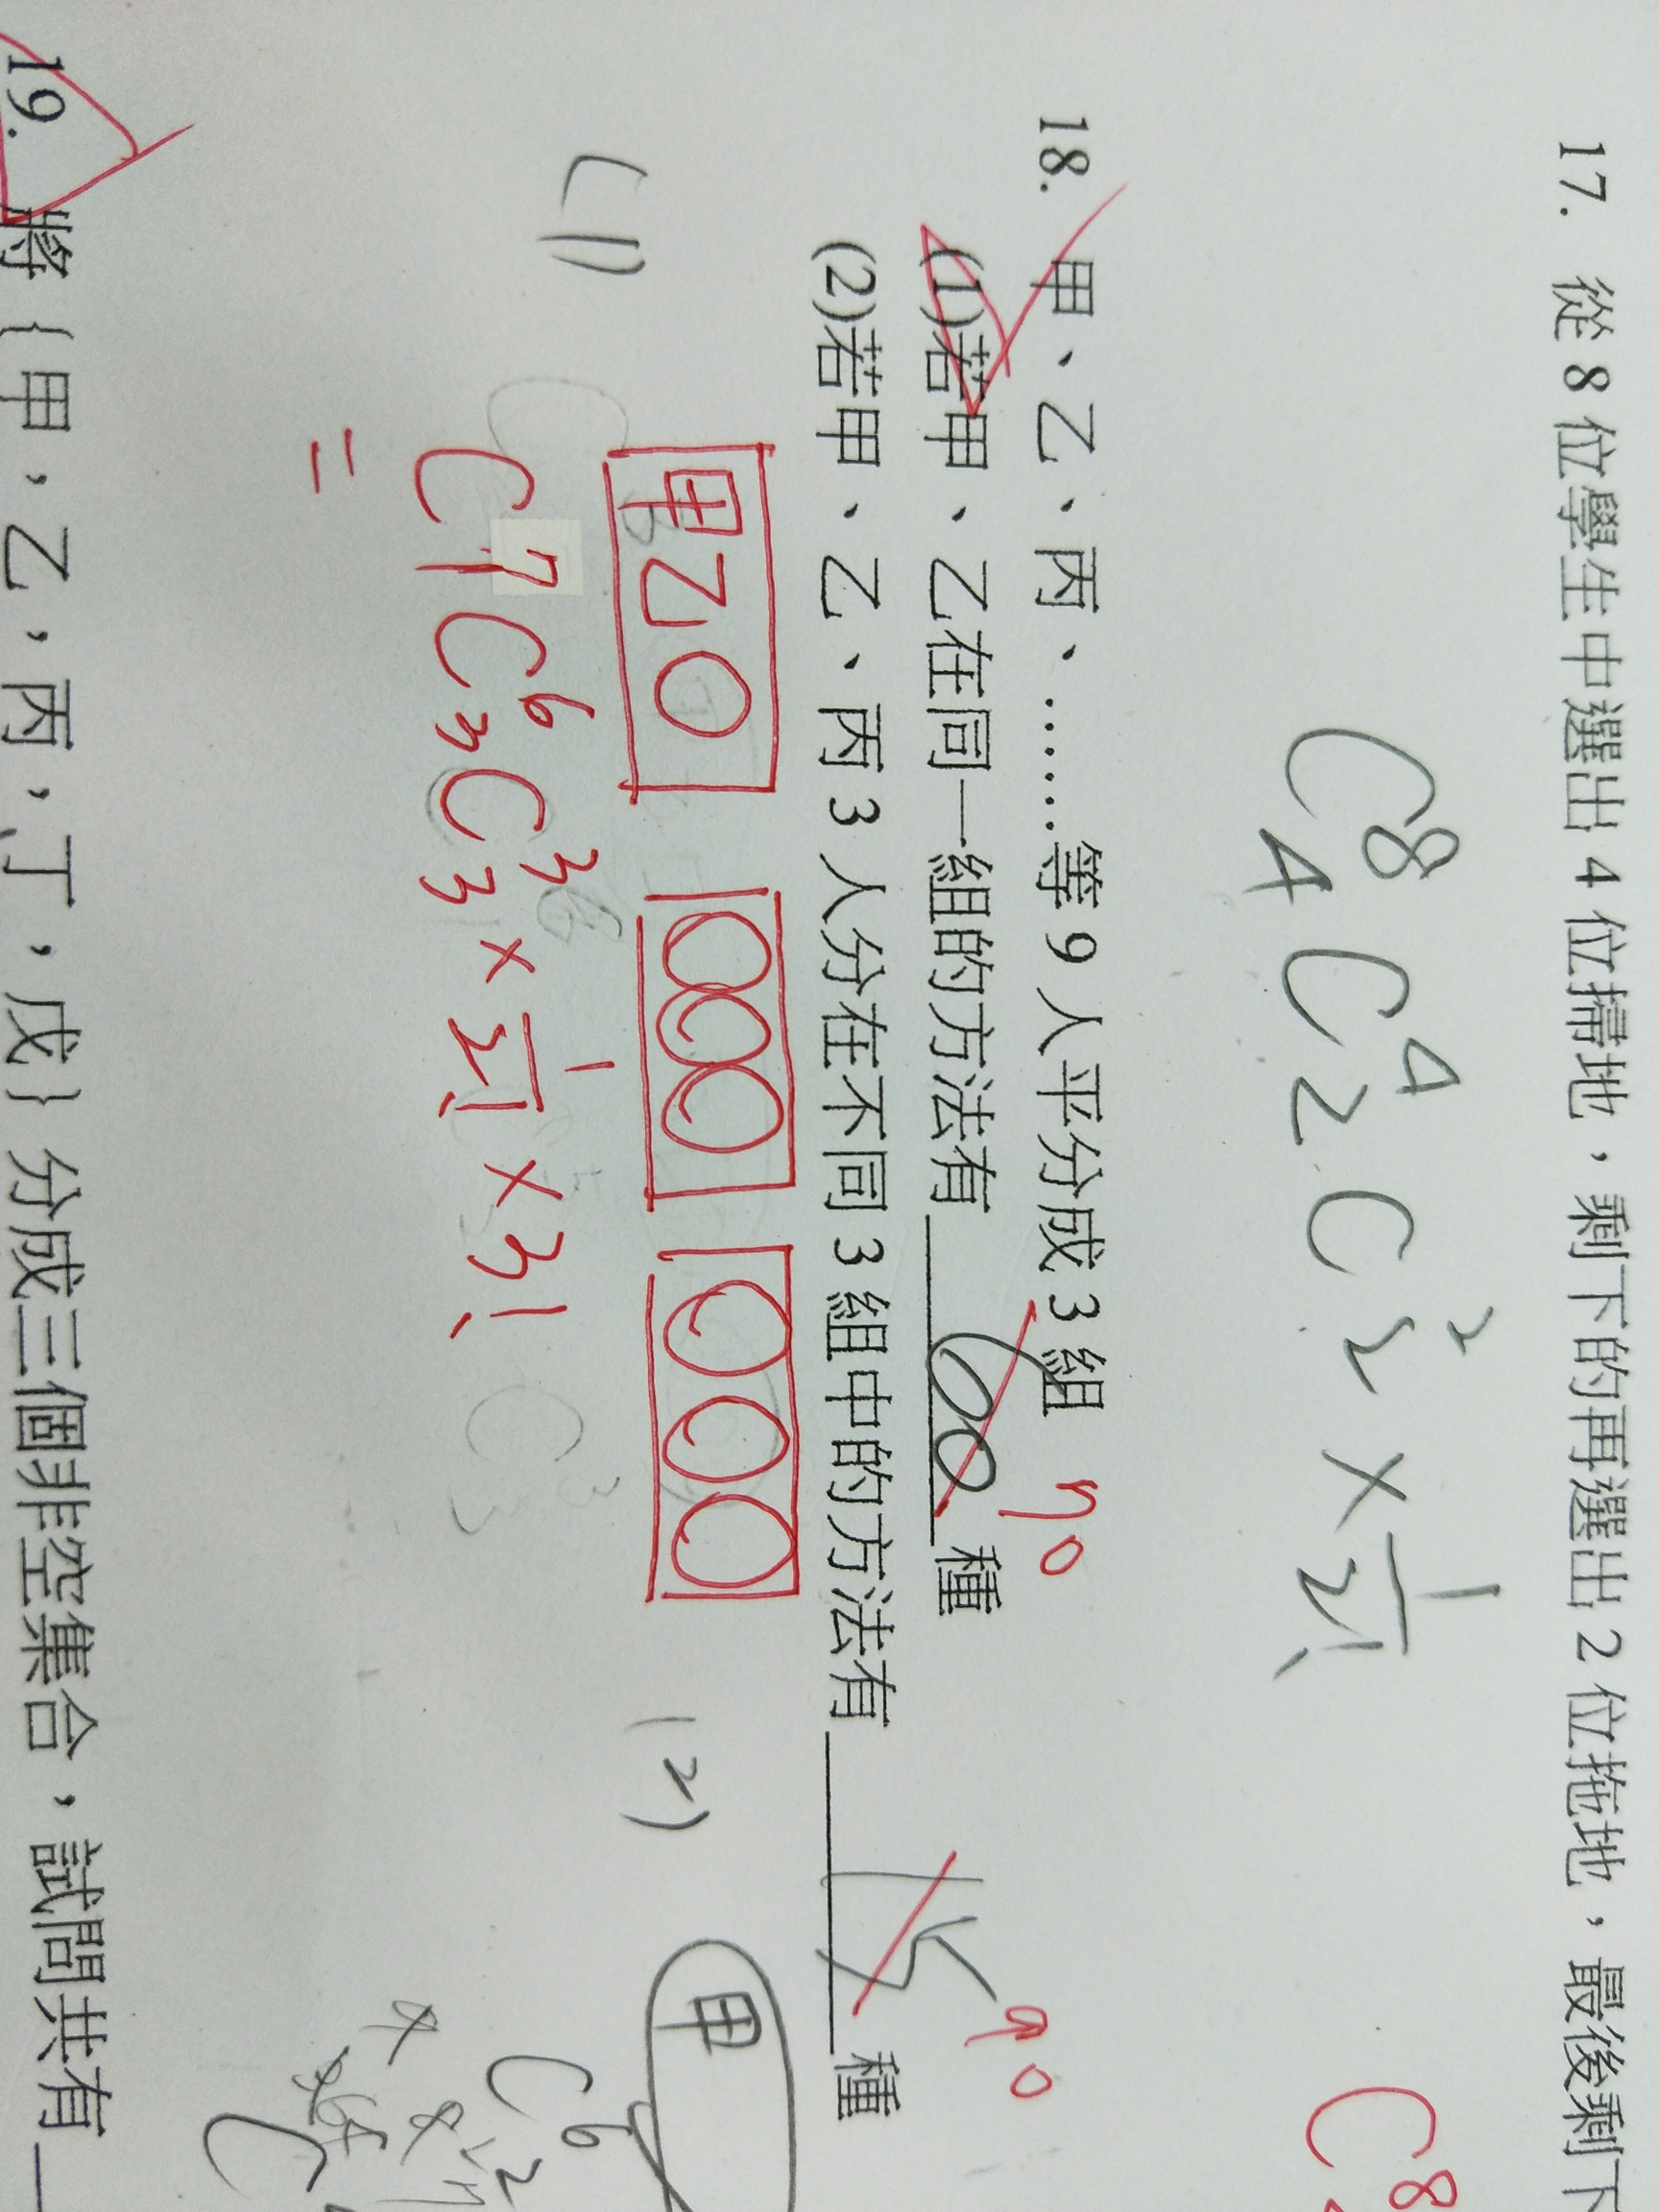 17. 從 8 位學生中選出 4 位掃地，剩下的再選出 2 位拖地，最後剩下
C⁸₄ C⁴₂ C²₂ × 1/2!
C⁸
18. 甲、乙、丙、……等 9 人平分成 3 組
(1)若甲、乙在同一組的方法有 60 種 70
(2)若甲、乙、丙 3 人分在不同 3 組中的方法有 15 種 90
(1) 甲乙○ ○○○ ○○○
C⁷₁ C⁶₃ C³₃ × 1/2! × 3!
=
(2) 甲
C⁶₂
19. 將{甲，乙，丙，丁，戊}分成三個非空集合，試問共有